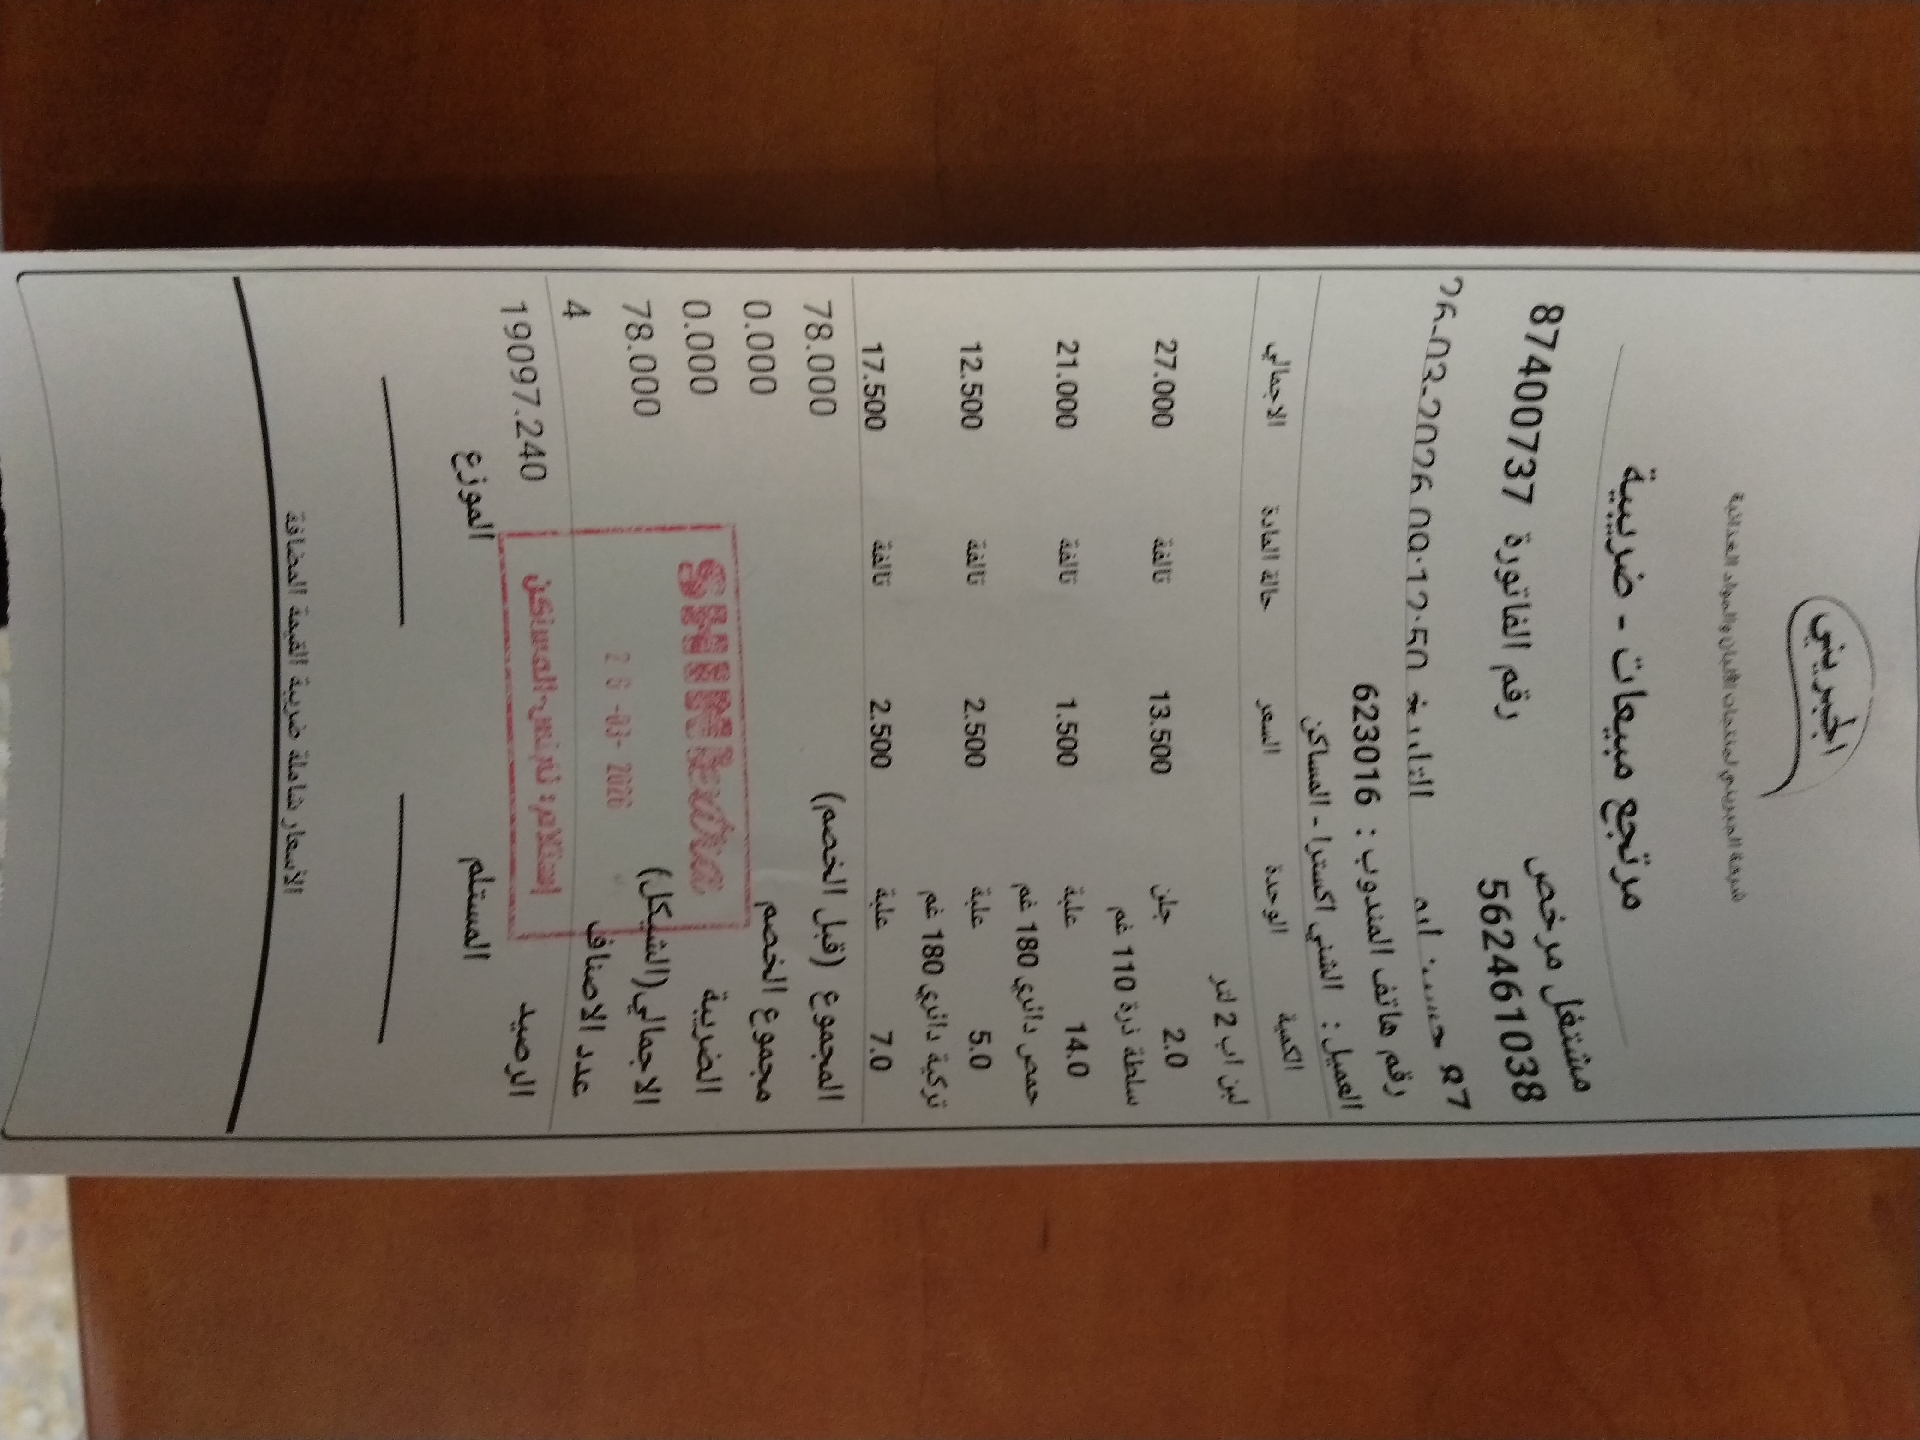 الجبريني
شركة الجبريني لمنتجات الألبان والمواد الغذائية
مرتجع مبيعات - ضريبية
مشتغل مرخص
562461038 رقم الفاتورة 87400737
87 التاريخ 26-03-2026 09:12:50
رقم هاتف المندوب : 623016
العميل : الشني اكسترا - المساكن
الكمية الوحدة السعر حالة المادة الاجمالي
لبن اب 2 لتر
2.0 جلن 13.500 تالفة 27.000
سلطة ذرة 110 غم
14.0 علبة 1.500 تالفة 21.000
حمص دائري 180 غم
5.0 علبة 2.500 تالفة 12.500
تركية دائري 180 غم
7.0 علبة 2.500 تالفة 17.500
المجموع (قبل الخصم) 78.000
مجموع الخصم 0.000
الضريبة 0.000
الاجمالي(الشيكل) 78.000
عدد الاصناف 4
الرصيد 19097.240
SHINI extra
26-03-2026
استلام: نرنس-المساكن
المستلم الموزع
الأسعار شاملة ضريبة القيمة المضافة